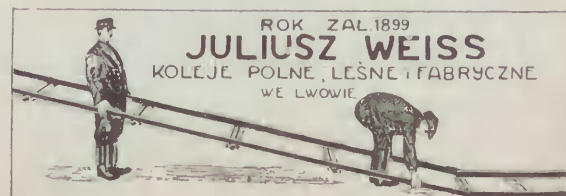 ROK ZAŁ. 1899
JULIUSZ WEISS
KOLEJE POLNE, LEŚNE i FABRYCZNE
WE LWOWIE